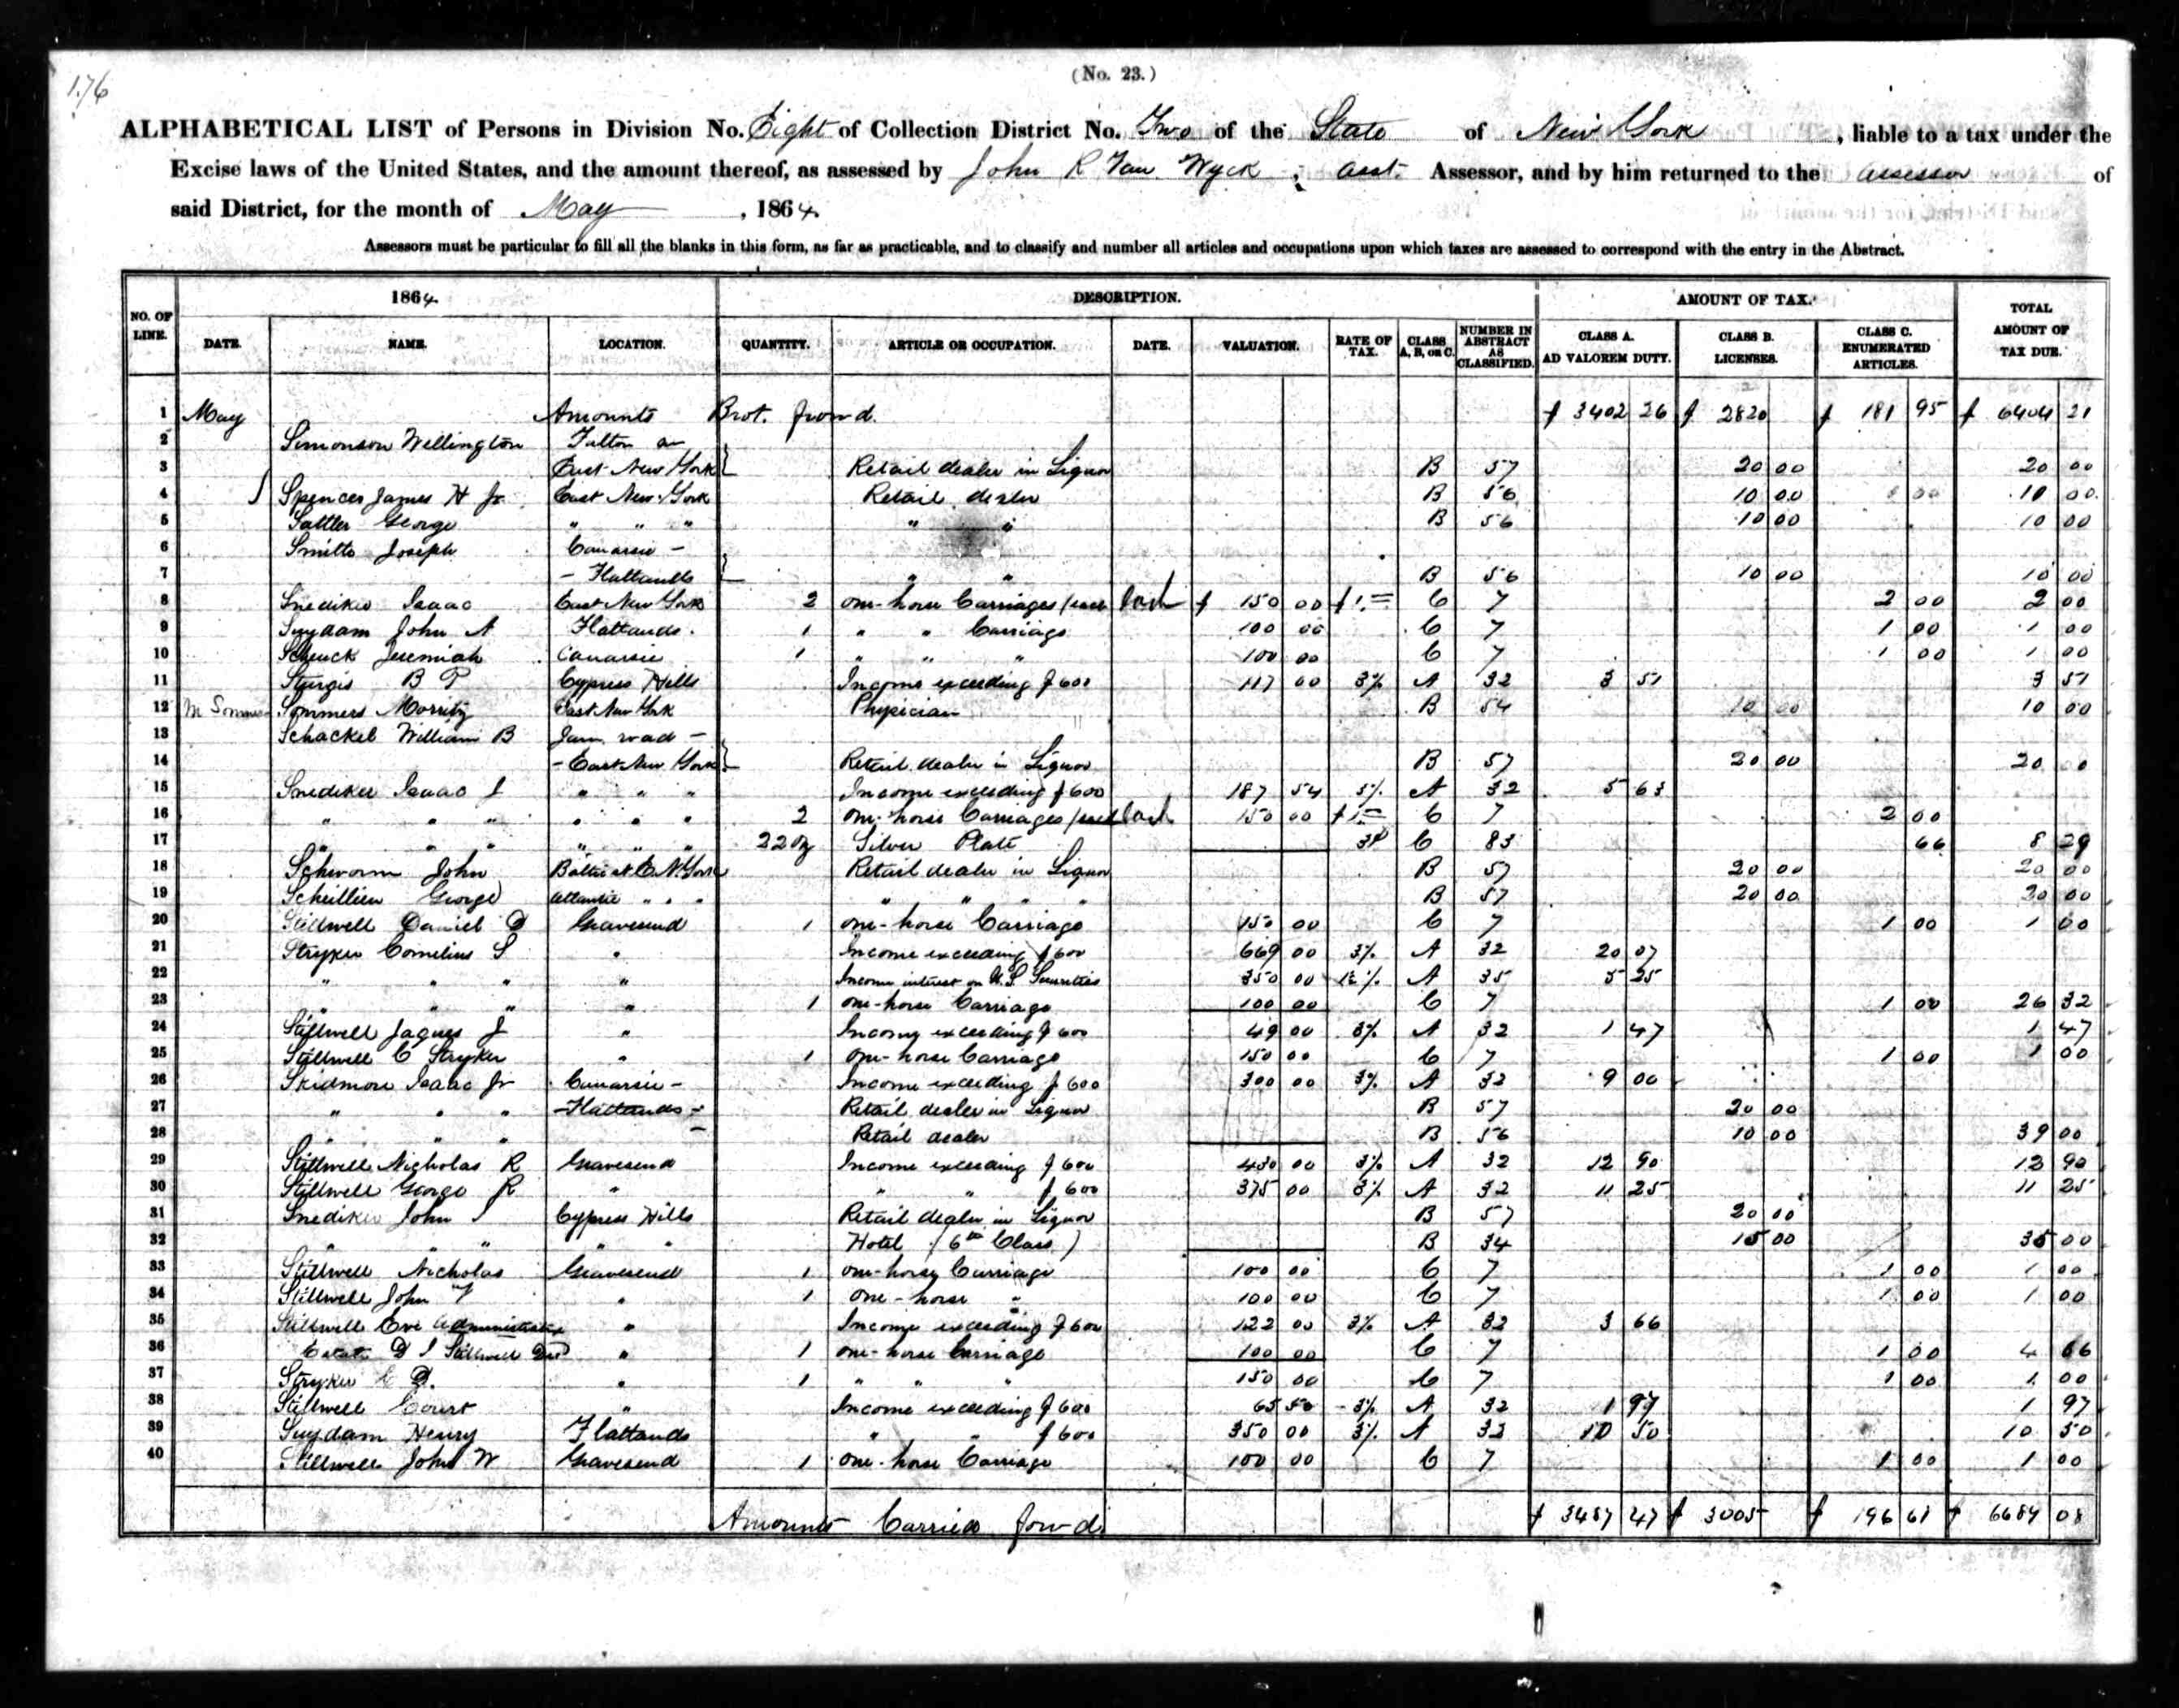 176
(No. 23.)
ALPHABETICAL LIST of Persons in Division No. Eight of Collection District No. Two of the State of New York, liable to a tax under the
Excise laws of the United States, and the amount thereof, as assessed by John R Van Wyck, asst. Assessor, and by him returned to the assessor of
said District, for the month of May, 1864.
Assessors must be particular to fill all the blanks in this form, as far as practicable, and to classify and number all articles and occupations upon which taxes are assessed to correspond with the entry in the Abstract.
1864. DESCRIPTION. AMOUNT OF TAX.
NO. OF LINE. DATE. NAME. LOCATION. QUANTITY. ARTICLE OR OCCUPATION. DATE. VALUATION. RATE OF TAX. CLASS A, B, OR C. NUMBER IN ABSTRACT AS CLASSIFIED. CLASS A. AD VALOREM DUTY. CLASS B. LICENSES. CLASS C. ENUMERATED ARTICLES. TOTAL AMOUNT OF TAX DUE.
1 May Amounts Brot. forw'd. $ 3402 26 $ 2820 $ 181 95 $ 6404 21
2 Simonson Wellington Fulton av
3 East New York Retail dealer in Liquor B 57 20 00 20 00
4 Spencer James H Jr East New York Retail dealer B 56 10 00 10 00
5 Sattler George " " " " " B 56 10 00 10 00
6 Smitts Joseph Canarsie -
7 - Flatlands " " B 56 10 00 10 00
8 Snediker Isaac East New York 2 one-horse Carriages / each $ 150 00 $1.= C 7 2 00 2 00
9 Suydam John A Flatlands. 1 " " Carriage 100 00 C 7 1 00 1 00
10 Schenck Jeremiah Canarsie 1 " " " 100 00 C 7 1 00 1 00
11 Sturgis B T Cypress Hills Income exceeding $600 117 00 3% A 32 3 51 3 51
12 M Sommers Sommers Morritz East New York Physician B 54 10 00 10 00
13 Schackel William B Jam. road -
14 - East New York Retail dealer in Liquor B 57 20 00 20 00
15 Snediker Isaac I " " " Income exceeding $600 187 54 3% A 32 5 63
16 " " " " " " 2 one-horse Carriages / each 150 00 $1.= C 7 2 00
17 " " " " " " 22 oz Silver Plate 3¢ C 83 66 8 29
18 Schworm John Baltic st E N. York Retail dealer in Liquor B 57 20 00 20 00
19 George Atlantic " " " " " " " B 57 20 00 20 00
20 Stillwell Daniel D Gravesend 1 one-horse Carriage 150 00 C 7 1 00 1 00
21 Stryker Cornelius S " Income exceeding $600 669 00 3% A 32 20 07
22 " " " " Income interest on U.S. Securities 350 00 1½% A 35 5 25
23 " " " " 1 one-horse Carriage 100 00 C 7 1 00 26 32
24 Stillwell Jaques J " Income exceeding $600 49 00 3% A 32 1 47 1 47
25 Stillwell C Stryker " 1 one-horse Carriage 150 00 C 7 1 00 1 00
26 Skidmore Isaac Jr Canarsie - Income exceeding $600 300 00 3% A 32 9 00
27 " " " - Flatlands - Retail dealer in Liquor B 57 20 00
28 " " " Retail dealer B 56 10 00 39 00
29 Stillwell Nicholas R Gravesend Income exceeding $600 430 00 3% A 32 12 90 12 90
30 Stillwell George R " " " $600 375 00 3% A 32 11 25 11 25
31 Snediker John I Cypress Hills Retail dealer in Liquor B 57 20 00
32 " " " " " Hotel (6th Class) B 34 15 00 35 00
33 Stillwell Nicholas Gravesend 1 one-horse Carriage 100 00 C 7 1 00 1 00
34 Stillwell John " 1 one-horse " 100 00 C 7 1 00 1 00
35 Stillwell Eve Administratrix " Income exceeding $600 122 00 3% A 32 3 66
36 Estate D I Stillwell Decd " 1 one-horse Carriage 100 00 C 7 1 00 4 66
37 Stryker E D. " 1 " " " 150 00 C 7 1 00 1 00
38 Stillwell Court " Income exceeding $600 65 50 3% A 32 1 97 1 97
39 Suydam Henry Flatlands " " $600 350 00 3% A 32 10 50 10 50
40 Stillwell John W Gravesend 1 one-horse Carriage 100 00 C 7 1 00 1 00
Amounts Carried forw'd. $ 3487 47 $ 3005 $ 196 61 $ 6689 08